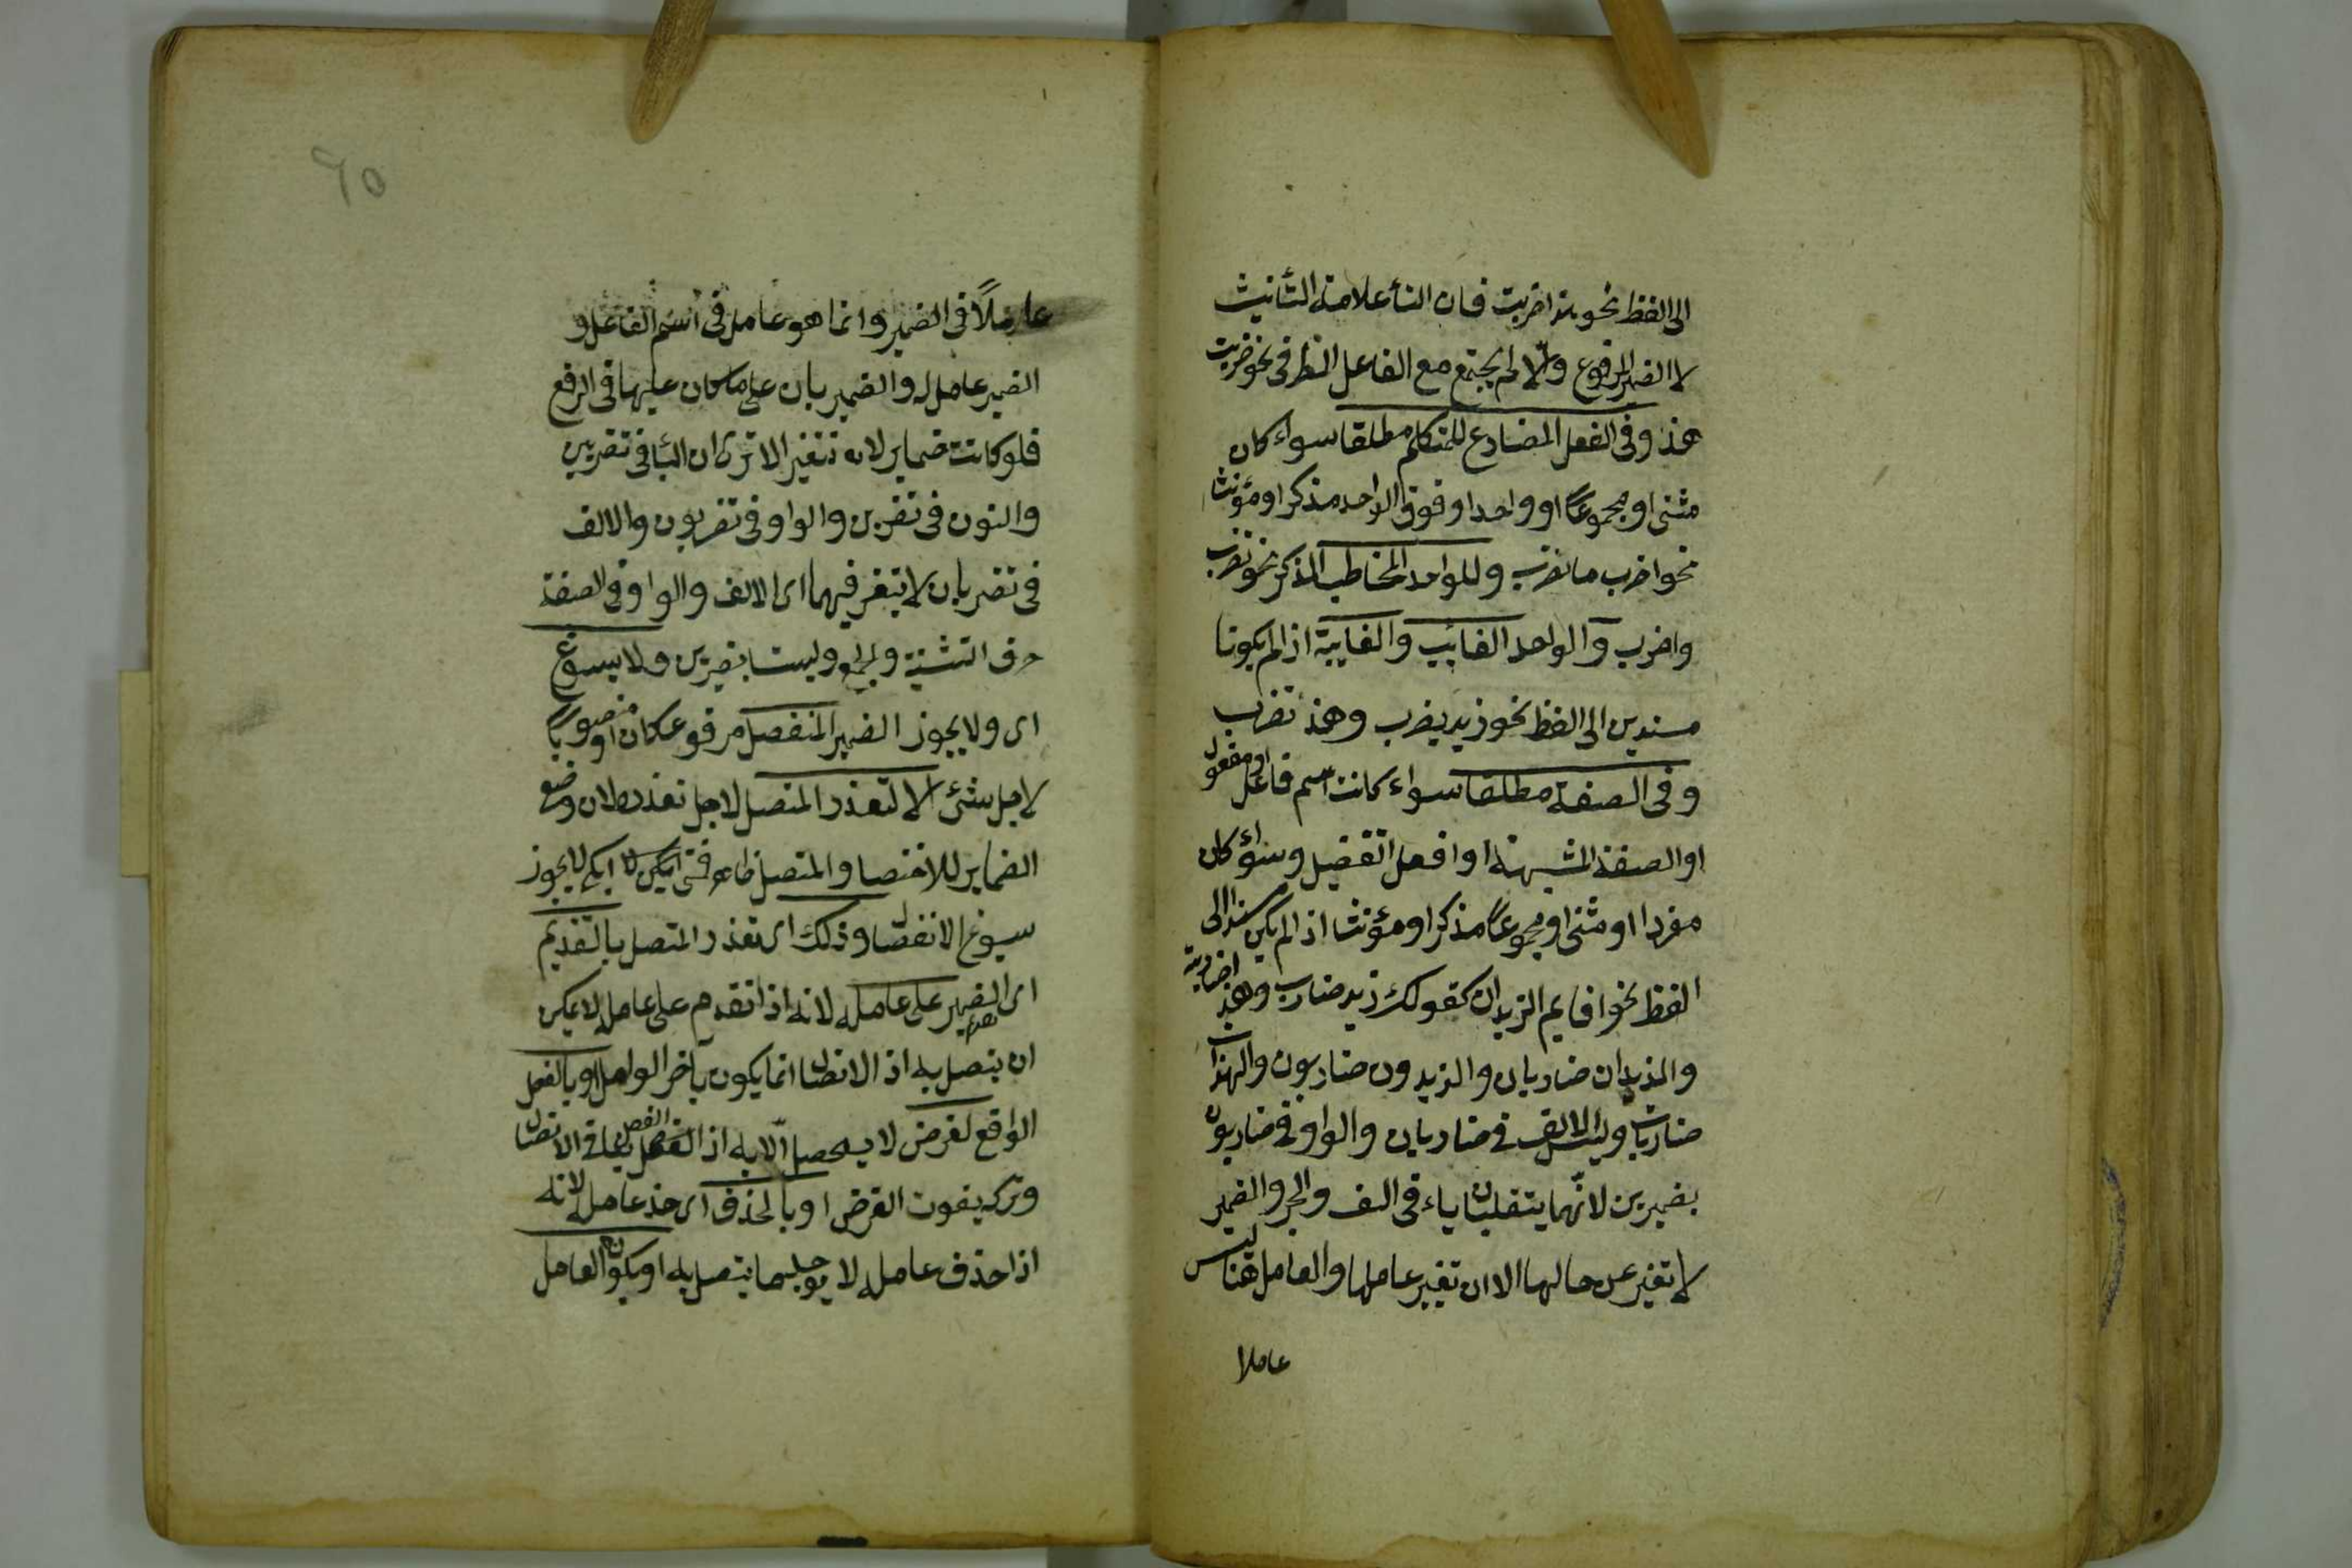 الى الفظ نحو هندا ضربت فان التأ علامة التأنيث
لا الضمير المرفوع والّا لم يجتمع مع الفاعل الظ فى نحو ضربت
هند وفى الفعل المضارع للمتكلم مطلقا سواء كان
مثنى او مجموعًا او واحدا او فوق الواحد مذكرا او مؤنثا
نحو اضرب ما نضرب وللواحد المخاطب المذكر نحو تضرب
واضرب والواحد الغايب والغايبة اذا لم يكونا
مسندين الى الفظ نحو زيد يضرب وهند تضرب
وفى الصفة مطلقا سواء كانت اسم فاعل او مفعول
او الصفة المشبهة او افعل التفضيل وسواء كان
مفردا او مثنى او مجموعًا مذكرا او مؤنثا اذا لم يكن مسندا الى
الفظ نحو اقايم الزيدان كقولك زيد ضارب وهند ضاربة
والزيدان ضاربان والزيدون ضاربون والهندات
ضاربات وليست الالف فى ضاربان والواو فى ضاربون
بضميرين لانّهما ينقلبان ياء فى النصف والجر والضمير
لا تغير عن حالها الا ان تغير عاملها والعامل هنا ليس
عاملا
٦٥
عاملًا فى الضمير وانما هو عامل فى اسم الفاعل و
الضمير عامله والضمير باق على ما كان عليها فى الرفع
فلو كانت ضماير لا تتغير الا ترى ان اليا فى تضربين
والنون فى تضربن والواو فى تضربون والالف
فى تضربان لا يتغير فيهما اى الالف والواو فى الصفة
حرف التثنية والجمع وليست بضميرين ولا يسوغ
اى ولا يجوز الضمير المنفصل مرفوعا كان او منصوبًا
لاجل شئ الا لتعذر المتصل لاجل تعذره لان وضع
الضماير للاختصا والمتصل فمتى امكن لا يجوز
يسوغ الانفصا وذلك اى تعذر المتصل بالتقديم
اى الضمير على عامله لانه اذا تقدم على عامله لا يمكن
ان يتصل به اذ الاتصال انما يكون بآخر العامل او بالفصل
الواقع لغرض لا يحصل الّا به اذ الفصل ينافى الاتصال
وتركه يفوت الغرض او بالحذف اى حذف عامله لانه
اذا حذف عامله لا يوجد ما يتصل به او يكون العامل